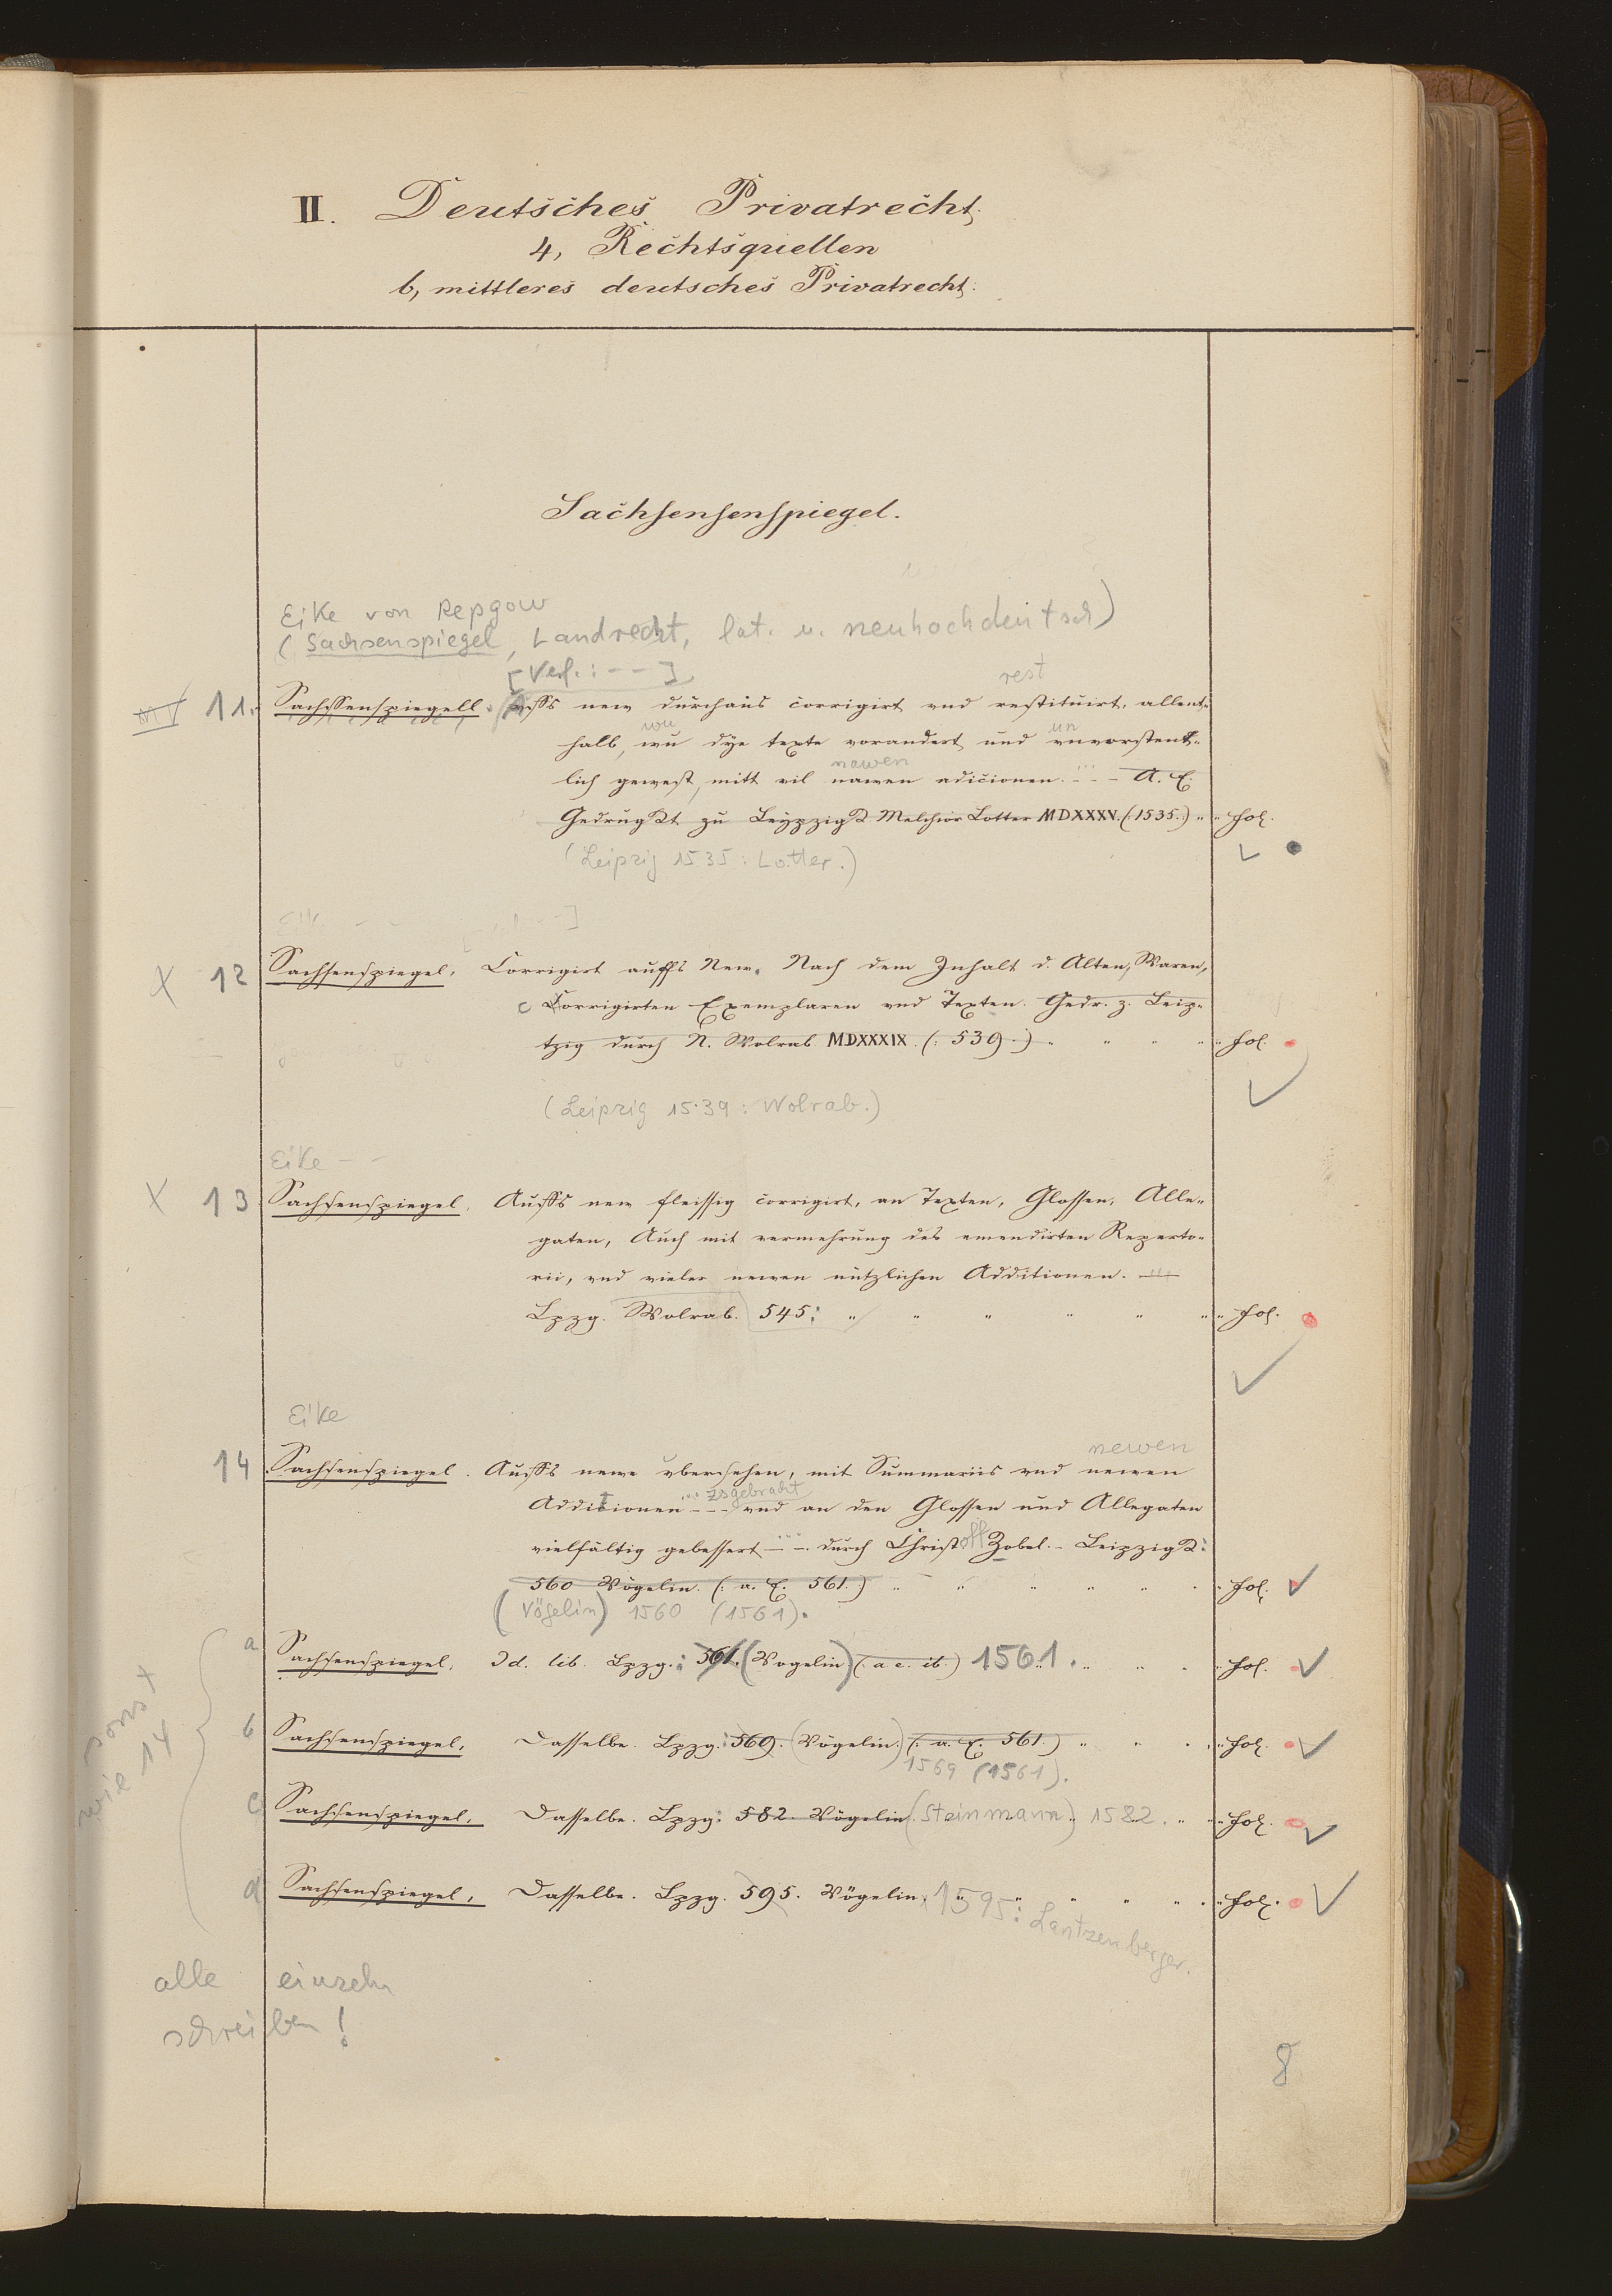 II. Deutsches Privatrecht.
4, Rechtsquellen
b, mittleres deutsches Privatrecht.
Sachsensenspiegel.
Eike von Repgow
(Sachsenspiegel, Landrecht, lat. u. neuhochdeutsch)
[Verf.: - - -]
rest
11. Sachssenspiegell. Auffs new durchaus corrigirt vnd restituirt, allent-
wu un
halb, wu dye texte vorandert und vnvorstent-
nawen
lich gewest, mitt vil nawen adicionen. - - - A. E.
Gedrugkt zu Leypzigk Melchior Lotter MDXXXV. (:1535.:) " " fol.
(Leipzig 1535: Lotter.)
Eik. - -
X 12 Sachsenspiegel, Corrigirt auffs New. Nach dem Inhalt d. Alten, Waren,
c Corrigirten Exemplaren vnd Texten. Gedr. z. Leip-
tzig durch N. Wolrab MDXXXIX. (: 539.:) " " " " " fol.
(Leipzig 1539: Wolrab.)
Eike - -
X 13 Sachsenspiegel. Auffs new fleissig corrigirt, an Texten, Glossen, Alle-
gaten, Auch mit vermehrung des emendirten Reperto-
rii, vnd vieler newen nützlichen Additionen. ...
Lpzg. Wolrab. 545: " " " " " " " fol.
Eike
newen
14 Sachsenspiegel. Auffs newe vbersehen, mit Summariis vnd newen
... zsgebracht
Additionen - - - vnd an den Glossen und Allegaten
vielfältig gebessert - ... - durch Christoff Zobel. - Leipzigk:
560 Vögelin. (: a. E. 561.) " " " " " " fol.
(Vögelin) 1560 (1561).
a Sachsenspiegel, Id. lib. Lpzg.: 561. (Vogelin) (: a. e. ib.) 1561. " " " fol.
b Sachsenspiegel, Dasselbe. Lpzg.: 569. (Vögelin.) (: a. E. 561.) " " " " fol.
1569 (1561).
c Sachsenspiegel, Dasselbe. Lpzg: 582 Vögelin (Steinmann) 1582. " " fol.
d Sachsenspiegel, Dasselbe. Lpzg. 595. Vögelin " " " " " fol.
1595: Lantzenberger.
sonst
wie 14
alle einzeln
schreiben!
8